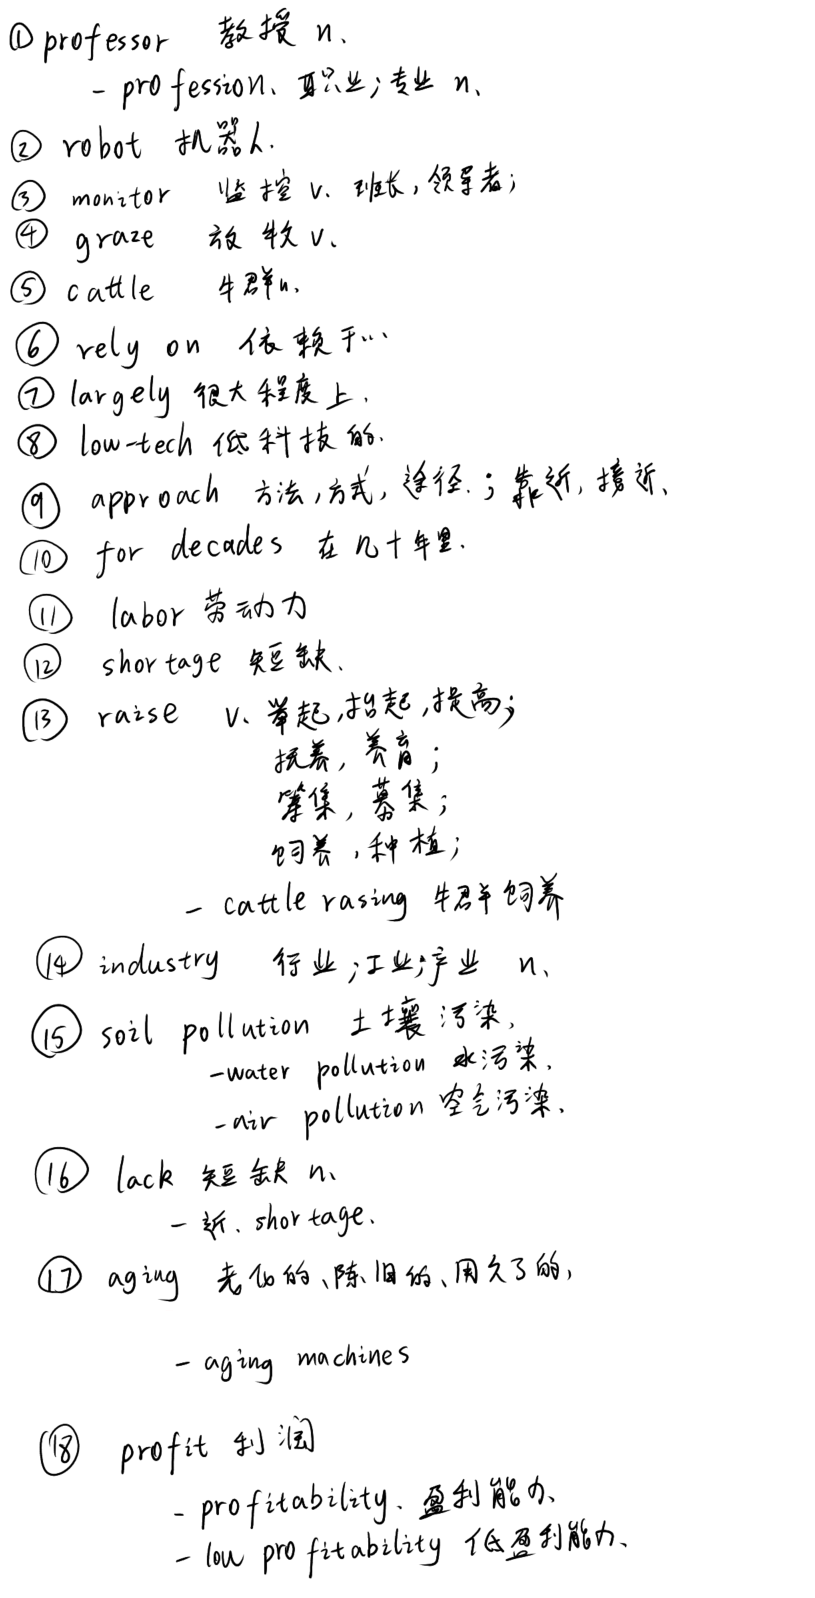 ① professor 教授 n、
- profession、职业；专业 n、
② robot 机器人.
③ monitor 监控 v、班长，领导者；
④ graze 放牧 v、
⑤ cattle 牛群n、
⑥ rely on 依赖于…
⑦ largely 很大程度上.
⑧ low-tech 低科技的.
⑨ approach 方法，方式，途径.；靠近，接近、
⑩ for decades 在几十年里.
⑪ labor 劳动力
⑫ shortage 短缺、
⑬ raise v、举起，抬起，提高；
抚养，养育；
筹集，募集；
饲养，种植；
- cattle rasing 牛群饲养
⑭ industry 行业；工业；产业 n、
⑮ soil pollution 土壤污染，
-water pollution 水污染、
-air pollution 空气污染、
⑯ lack 短缺 n、
- 近、shortage.
⑰ aging 老化的、陈旧的、用久了的，
- aging machines
⑱ profit 利润
- profitability、盈利能力、
- low profitability 低盈利能力、